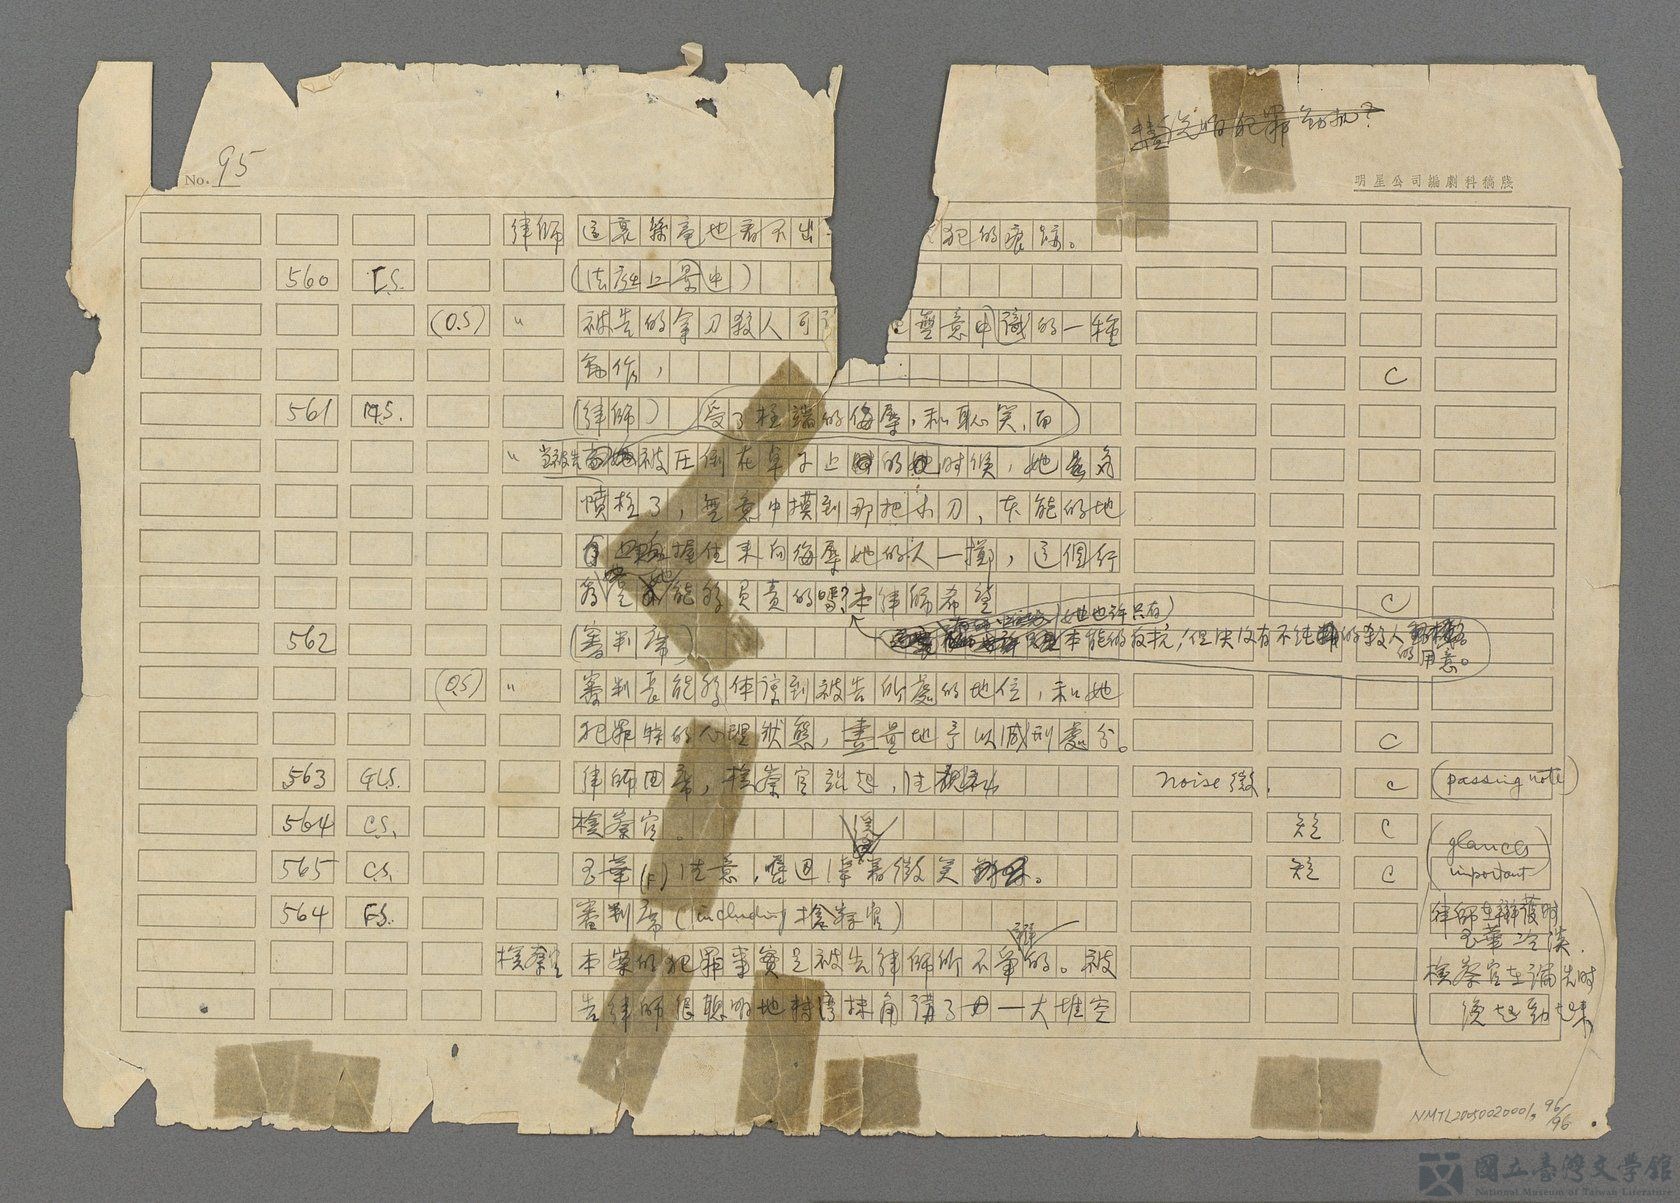 No. 95
明星公司編劇科稿牋
律師 這裏絲毫也看不出 犯的痕跡。
560 F.S. (法庭上景中)
(O.S) 〃 被告的拿刀殺人可 無意中識的一種
動作, C
561 M.S. (律師) 受了極端的侮辱,和恥笑,而
〃 當被告被圧倒在桌子上的時候,她氣
憤極了,無意中摸到那把小刀,本能的地
握住來向侮辱她的人一擲,這個行
為是能夠負責的嗎?本律師希望 C
她也許只有
562 (審判席) 本能的反抗,但決沒有不純的殺人的用意。
(O.S) 〃 審判長能夠体諒到被告所處的地位,和她
犯罪時的心理狀態,盡量地予以減刑處分。 C
563 G.L.S. 律師回席,檢察官站起, noise 微. C (passing note)
564 C.S. 檢察官。 短 C
(glances
565 C.S. 玉華(F)注意, 微笑 短 C important)
564 F.S. 審判席(including 檢察官)
律師在辯護時
玉華冷淡.
檢察官 本案的犯罪事實是被告律師所不爭辯的。被
檢察官在論告時
告律師很聰明地轉灣抹角講了一大堆空
NMTL20050020001, 96/96
國立臺灣文學館
National Museum of Taiwan Literature